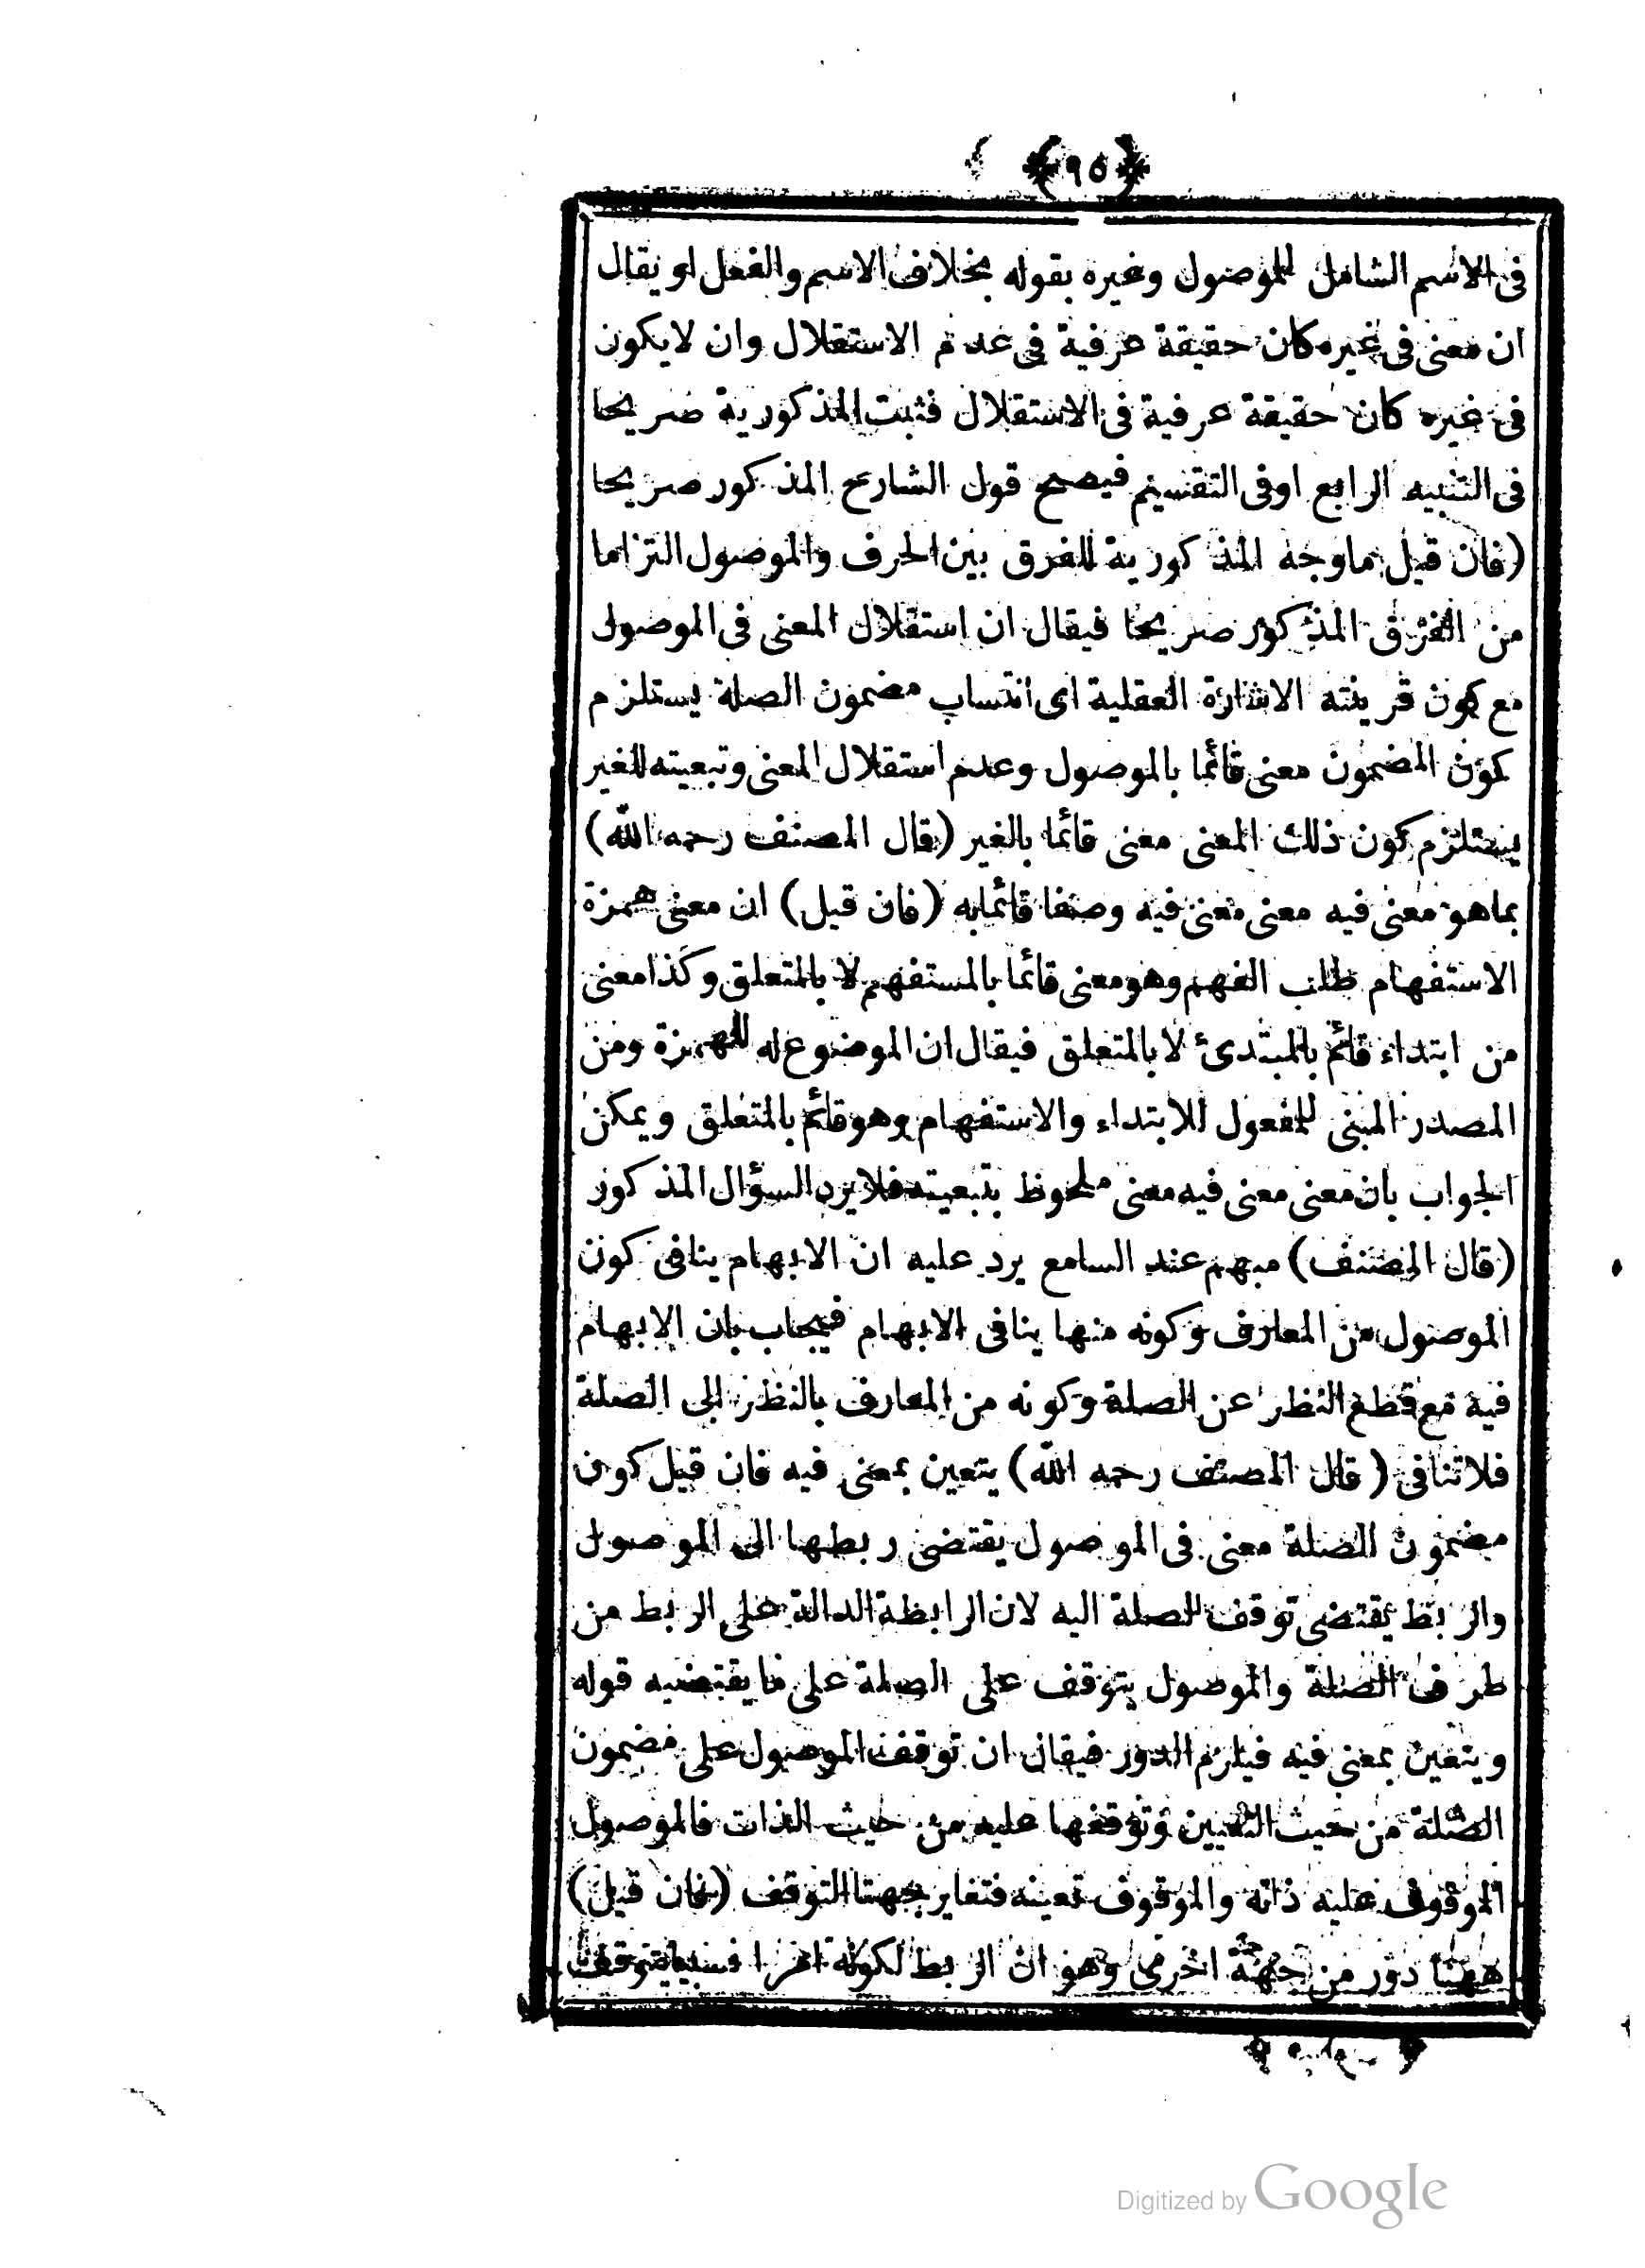 ﴿٩٥﴾
فى الاسم الشامل للموصول وغيره بقوله بخلاف الاسم والفعل او يقال
ان معنى فى غيره كان حقيقة عرفية فى عدم الاستقلال وان لا يكون
فى غيره كان حقيقة عرفية فى الاستقلال فثبت المذكورية صريحا
فى التنبيه الرابع اوفى التقسيم فيصح قول الشارح المذكور صريحا
(فان قيل ماوجه المذكورية للفرق بين الحرف والموصول التزاما
من الفرق المذكور صريحا فيقال ان استقلال المعنى فى الموصول
مع كون قرينته الاشارة العقلية اى انتساب مضمون الصلة يستلزم
كون المضمون معنى قائما بالموصول وعدم استقلال المعنى وتبعيته للغير
يستلزم كون ذلك المعنى معنى قائما بالغير (قال المصنف رحمه الله)
بماهو معنى فيه معنى معنى فيه وصفا قائمابه (فان قيل) ان معنى همزة
الاستفهام طلب الفهم وهو معنى قائما بالمستفهم لا بالمتعلق وكذا معنى
من ابتداء قائم بالمبتدئ لا بالمتعلق فيقال ان الموضوع له للهمزة ومن
المصدر المبنى للمفعول للابتداء والاستفهام وهو قائم بالمتعلق ويمكن
الجواب بان معنى معنى فيه معنى ملحوظ بتبعيته فلا يرد السؤال المذكور
(قال المصنف) مبهم عند السامع يرد عليه ان الابهام ينافى كون
الموصول من المعارف وكونه منها ينافى الابهام فيجاب بان الابهام
فيه مع قطع النظر عن الصلة وكونه من المعارف بالنظر الى الصلة
فلا تنافى (قال المصنف رحمه الله) يتعين بمعنى فيه فان قيل كون
مضمون الصلة معنى فى الموصول يقتضى ربطها الى الموصول
والربط يقتضى توقف الصلة اليه لان الرابطة الدالة على الربط من
طرفى الصلة والموصول يتوقف على الصلة على ما يقتضيه قوله
ويتعين بمعنى فيه فيلزم الدور فيقال ان توقف الموصول على مضمون
الصلة من حيث التعيين وتوقفها عليه من حيث الذات فالموصول
الموقوف عليه ذاته والموقوف تعينه فتغاير جهتا التوقف (فان قيل)
ههنا دور من جهة اخرى وهو ان الربط لكونه امرا نسبيا يتوقف
Digitized by Google